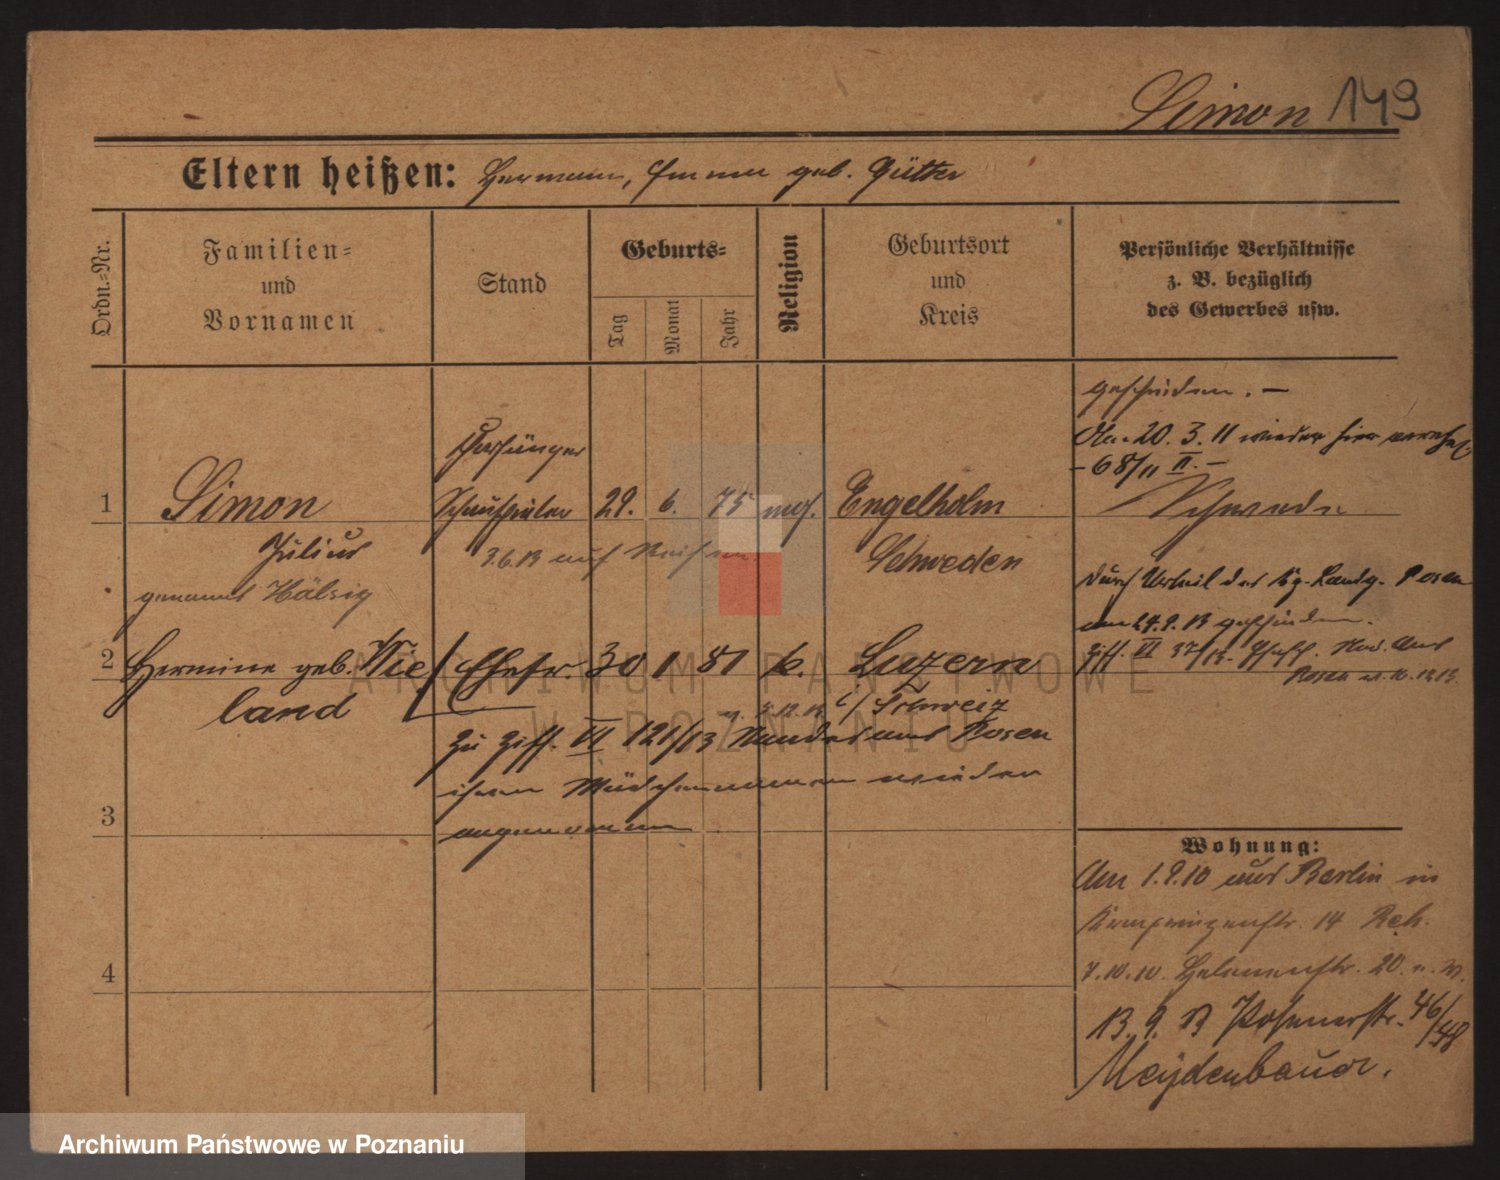 Simon 149
Eltern heißen: Hermann, Emma geb. Gütter
Ordn.-Nr.
Familien-
und
Vornamen
Stand
Geburts-
Tag
Monat
Jahr
Religion
Geburtsort
und
Kreis
Persönliche Verhältnisse
z. B. bezüglich
des Gewerbes usw.
geschieden. –
Am 20. 3. 11 wieder hier
– 68/11 II. –
Schwede
1
Simon
Julius
genannt Hälsig
Schauspieler
29. 6. 75 mos. Engelholm
Schweden
3.6.13 auf Reisen
durch Urteil des Kg. Landg. Posen
am 24.9.13 geschieden.
Ziff. VI 37/13. Posen
2
Hermine geb. Wie
land
Ehefr. 30 1 81 k. Luzern
i/ Schweiz
zu Ziff. VI 121/13 Standesamt Posen
ihren Mädchennamen wieder
angenommen
3
4
Wohnung:
Am 1.9.10 aus Berlin in
Kronprinzenstr. 14 Reh.
7.10.10. Helenenstr. 20.
13. 9. 13 Posenerstr. 46/48
Meydenbauer.
ARCHIWUM PAŃSTWOWE
W POZNANIU
Archiwum Państwowe w Poznaniu